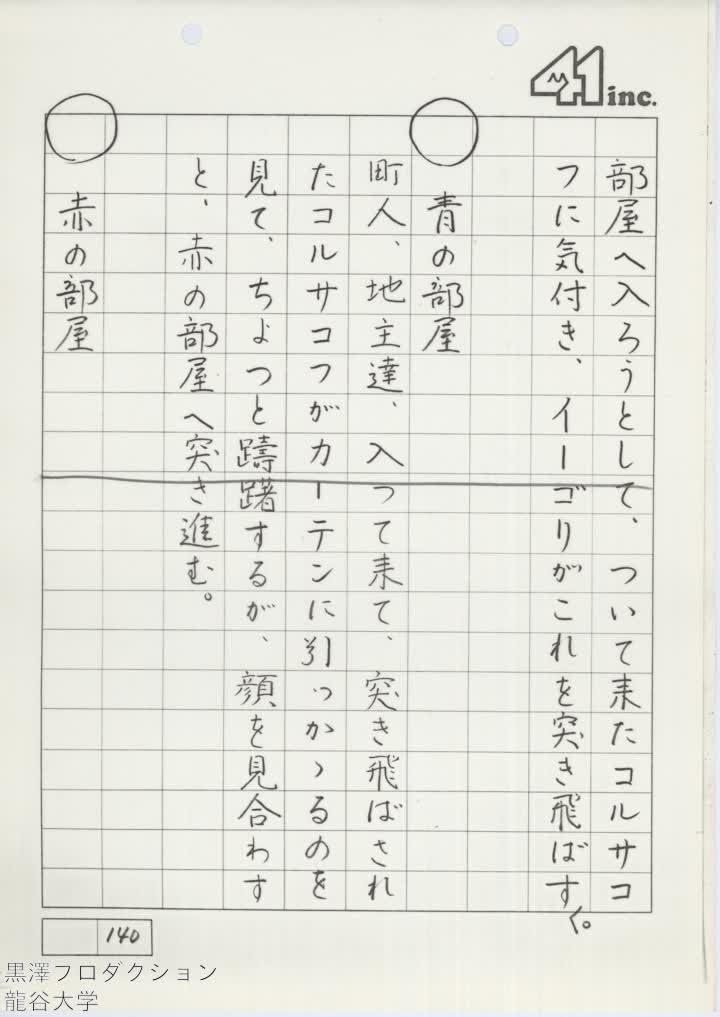 41 inc.
部屋へ入ろうとして、ついて来たコルサコ
フに気付き、イーゴリがこれを突き飛ばす。
○ 青の部屋
町人、地主達、入って来て、突き飛ばされ
たコルサコフがカーテンに引っかゝるのを
見て、ちよつと躊躇するが、顔を見合わす
と、赤の部屋へ突き進む。
○ 赤の部屋
140
黒澤プロダクション
龍谷大学